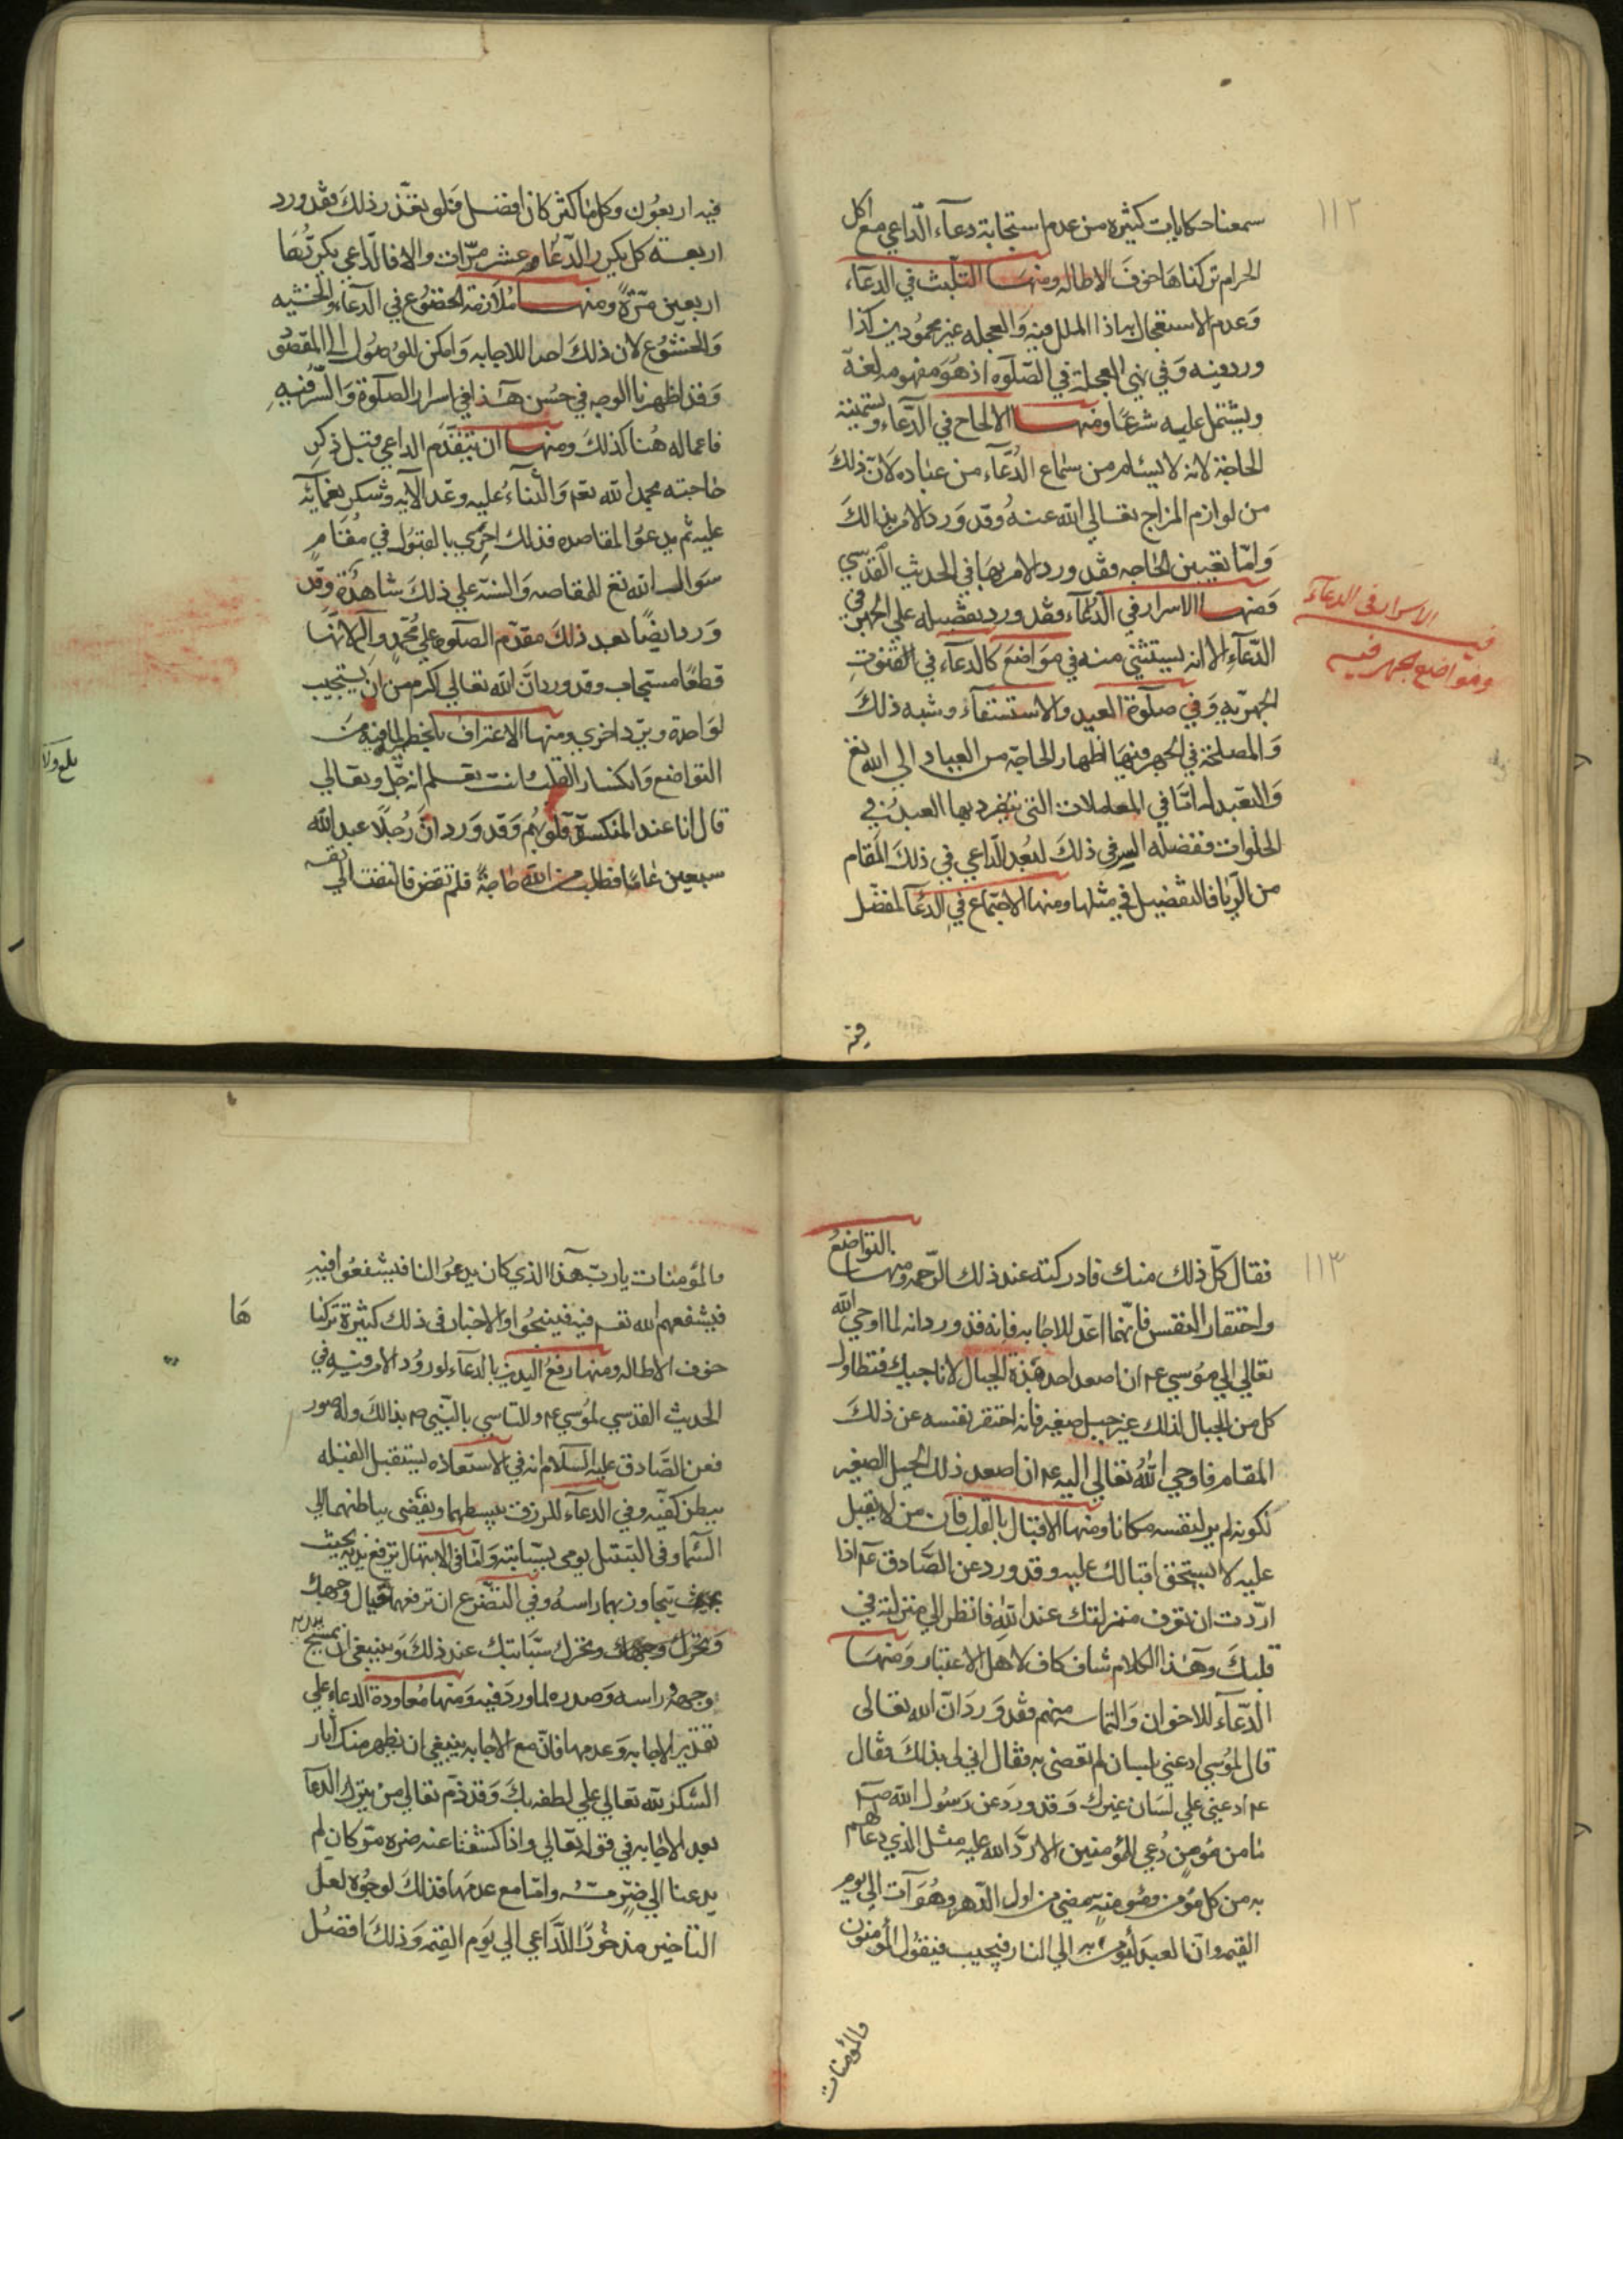 ١١٢
سمعنا حكايات كثيره من عدم استجابة دعآء الداعي مع اكل
الحرام تركناها خوف الاطاله ومنها التلبث في الدعآء
وعدم الاستعجال به اذا الملل فيه والعجله غير محمودين كذا
ورد فيه وفي نهي العجلة في الصلوه اذ هو مفهومه لغة
ويشتمل عليه شرعا ومنها الالحاح في الدعآء وتسمية
الحاجة لانه لا يسئم من سماع الدعآء من عباده لان ذلك
من لوازم المزاج تعالي الله عنه وقد ورد الامر بذالك
واما تعيين الحاجه فقد ورد الامر بها في الحديث القدسي
ومنها الاسرار في الدعآء فقد ورد تفضيله علي الجهر في
الدعآء الا انه يستثني منه في مواضع كالدعآء في القنوت
الجهريه وفي صلوة العيد والاستسقآء وشبه ذلك
والمصلحة في الجهر فيها اظهار الحاجة من العباد الي الله تع
والتعبد له اما في المعاملات التي يتفرد بها العبد في
الخلوات ففضله السر في ذلك لبعد الداعي في ذلك المقام
من الريا فالتفضيل في مثلها ومنها الاجتماع في الدعآ لمفضل
فيه الاسرار في الدعآء
ومواضع يجهر فيه
فيه اربعون وكل ما كثر كان افضل فلو تعذر ذلك فقد ورد
اربعة كل يكرر الدعاء عشر مرات والا فالداعي يكررها
اربعين مرة ومنها ملازمة الخضوع في الدعاء والخشيه
والخشوع لان ذلك احرا للاجابه وامكن للوصول الي المقصود
وقد اظهرنا الوجه في حسن هذا في اسرار الصلوة والسر فيه
فاعماله هنا كذلك ومنها ان يتقدم الداعي قبل ذكر
حاجته بحمد الله تعم والثناء عليه وعد الآيه وشكر نعمآئه
عليه ثم يدعو المقاصده فذلك احري بالقبول في مقام
سوال الله تع للمقاصد والسنة علي ذلك شاهدة وقد
ورد ايضا بعد ذلك مقدم الصلوه علي محمد واله لانها
قطعا مستجاب وقد ورد ان الله تعالي اكرم من ان يستجيب
لواحدة ويرد اخري ومنها الاعتراف بالخطا لما فيه من
التواضع وانكسار القلب انت تعلم انه جل وتعالي
قال انا عند المنكسرة قلوبهم وقد ورد ان رجلا عبد الله
سبعين عاما فطلب من الله حاجة فلم تقض فالتفت الي نفسه
١١٣
فقال كل ذلك منك فادركته عند ذلك الرحمه ومنها التواضع
واحتقار النفس فانهما اعد للاجابه فانه قد ورد انه لما اوحي الله
تعالي الي موسي عم ان اصعد احد هذه الجبال لاناجيك فتطاول
كل من الجبال لذلك غير جبل صغير فانه احتقر نفسه عن ذلك
المقام فاوحي الله تعالي اليه عم ان اصعد ذلك الجبل الصغير
لكونه لم ير لنفسه مكانا ومنها الاقبال بالقلب فان من لا يقبل
عليه لا يستحق اقبالك عليه وقد ورد عن الصادق عم اذا
اردت ان تعرف منزلتك عند الله فانظر الي منزلته في
قلبك وهذا الكلام شاف كاف لاهل الاعتبار ومنها
الدعآء للاخوان والتماسه منهم فقد ورد ان الله تعالى
قال لموسي ادعني بلسان لم تعصني به فقال اني لي بذلك فقال
عم ادعيني علي لسان غيرك وقد ورد عن رسول الله صم
ما من مؤمن دعي للمؤمنين الا رد الله عليه مثل الذي دعا لهم
به من كل مؤمن ومؤمنة مضي من اول الدهر وهو آت الي يوم
القيمه وان العبد ليؤمر به الي النار فيجيب فيقول المؤمنون
والمؤمنات
والمؤمنات يارب هذا الذي كان يدعو لنا فيشفعوا فيه
فيشفعهم الله تعم فيه فينجوا والاخبار في ذلك كثيرة تركنا
ها
خوف الاطاله ومنها رفع اليدين بالدعآء لورود الامر فيه في
الحديث القدسي لموسي عم وللتاسي بالنبي صم بذالك وله صور
فعن الصادق عليه السلام انه في الاستعاذه يستقبل القبله
ببطن كفيه وفي الدعآء للرزق يبسطهما ويفضي بباطنهما الي
السما وفي التبتل يومي بسبابته واما في الابتهال ترفع يديه بحيث
يتجاوز بهما راسه وفي التضرع ان ترفعهما حيال وجهك
وتحرك سبابتيك عند ذلك وينبغي ان يمسح بيديه
وجهه وراسه وصدره لما ورد فيه ومنها معاودة الدعاء علي
تقدير الاجابه وعدمها فان مع الاجابه ينبغي ان يظهر منك اثار
الشكر لله تعالي علي لطفه بك وقد ذم تعالي من يترك الدعآ
بعد الاجابه في قوله تعالي واذا كشفنا عنه ضره مر كان لم
يدعنا الي ضر مسه واما مع عدمها فذلك لوجوه لعل
التاخير مذخورا للداعي الي يوم القيمه وذلك افضل